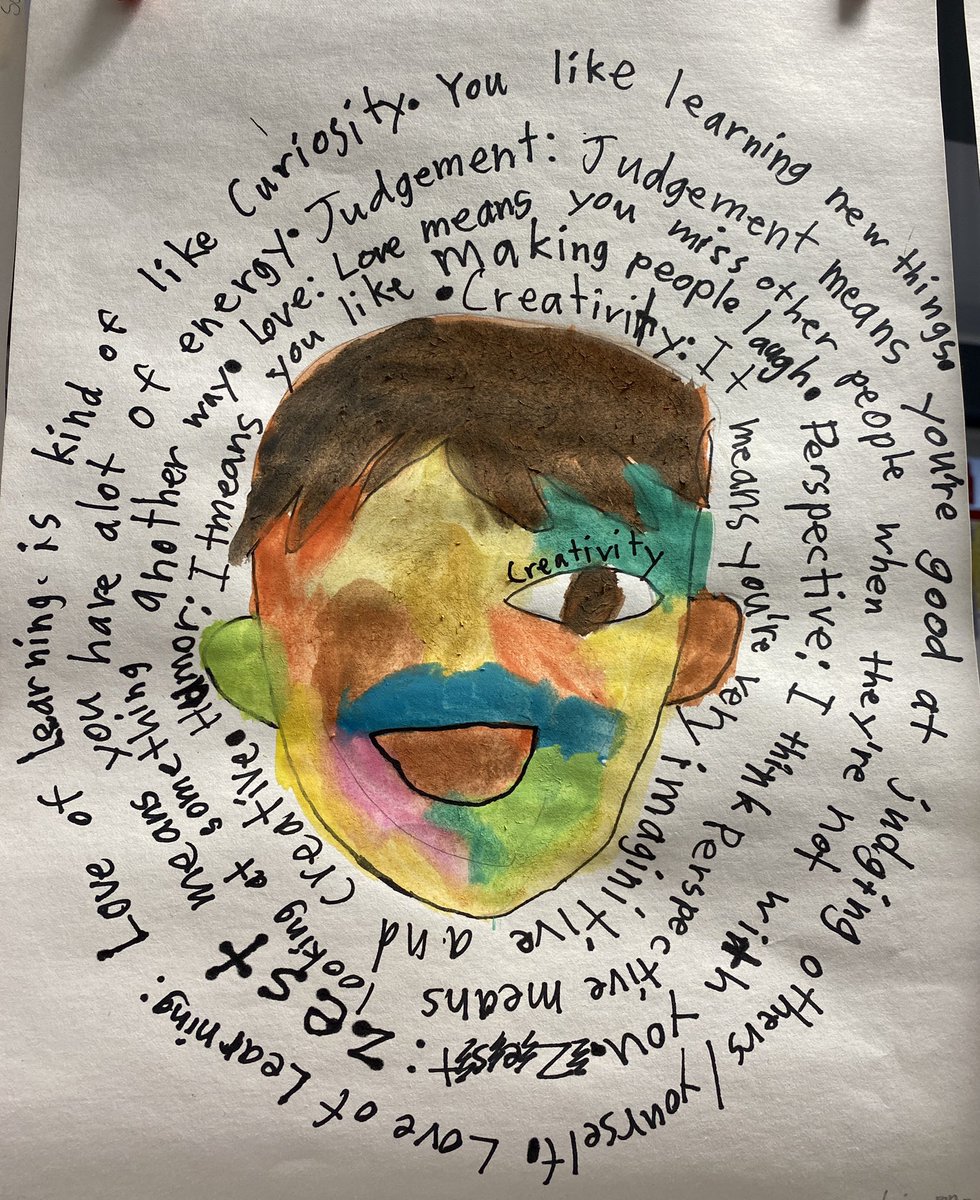 •Creativity: It means you're vehy imaginitive and creative.
Humor: It means you like making people laugh.
Perspective: I think Perspective means looking at something another way.
Love: Love means you miss other people when they're not with you.
: zest means you have alot of energy.
Judgement: Judgement means you're good at judging others/yourself.
Love of Learning: Love of learning is kind of like Curiosity. You like learning new things.
Creativity